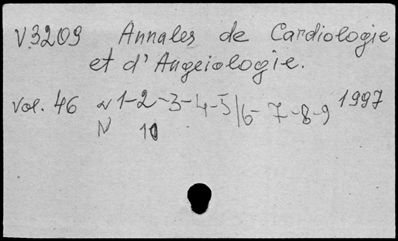 V.3209 Annales de Cardiologie
et d'Angeiologie.
Vol. 46 N 1-2-3-4-5/6-7-8-9 1997
N 10